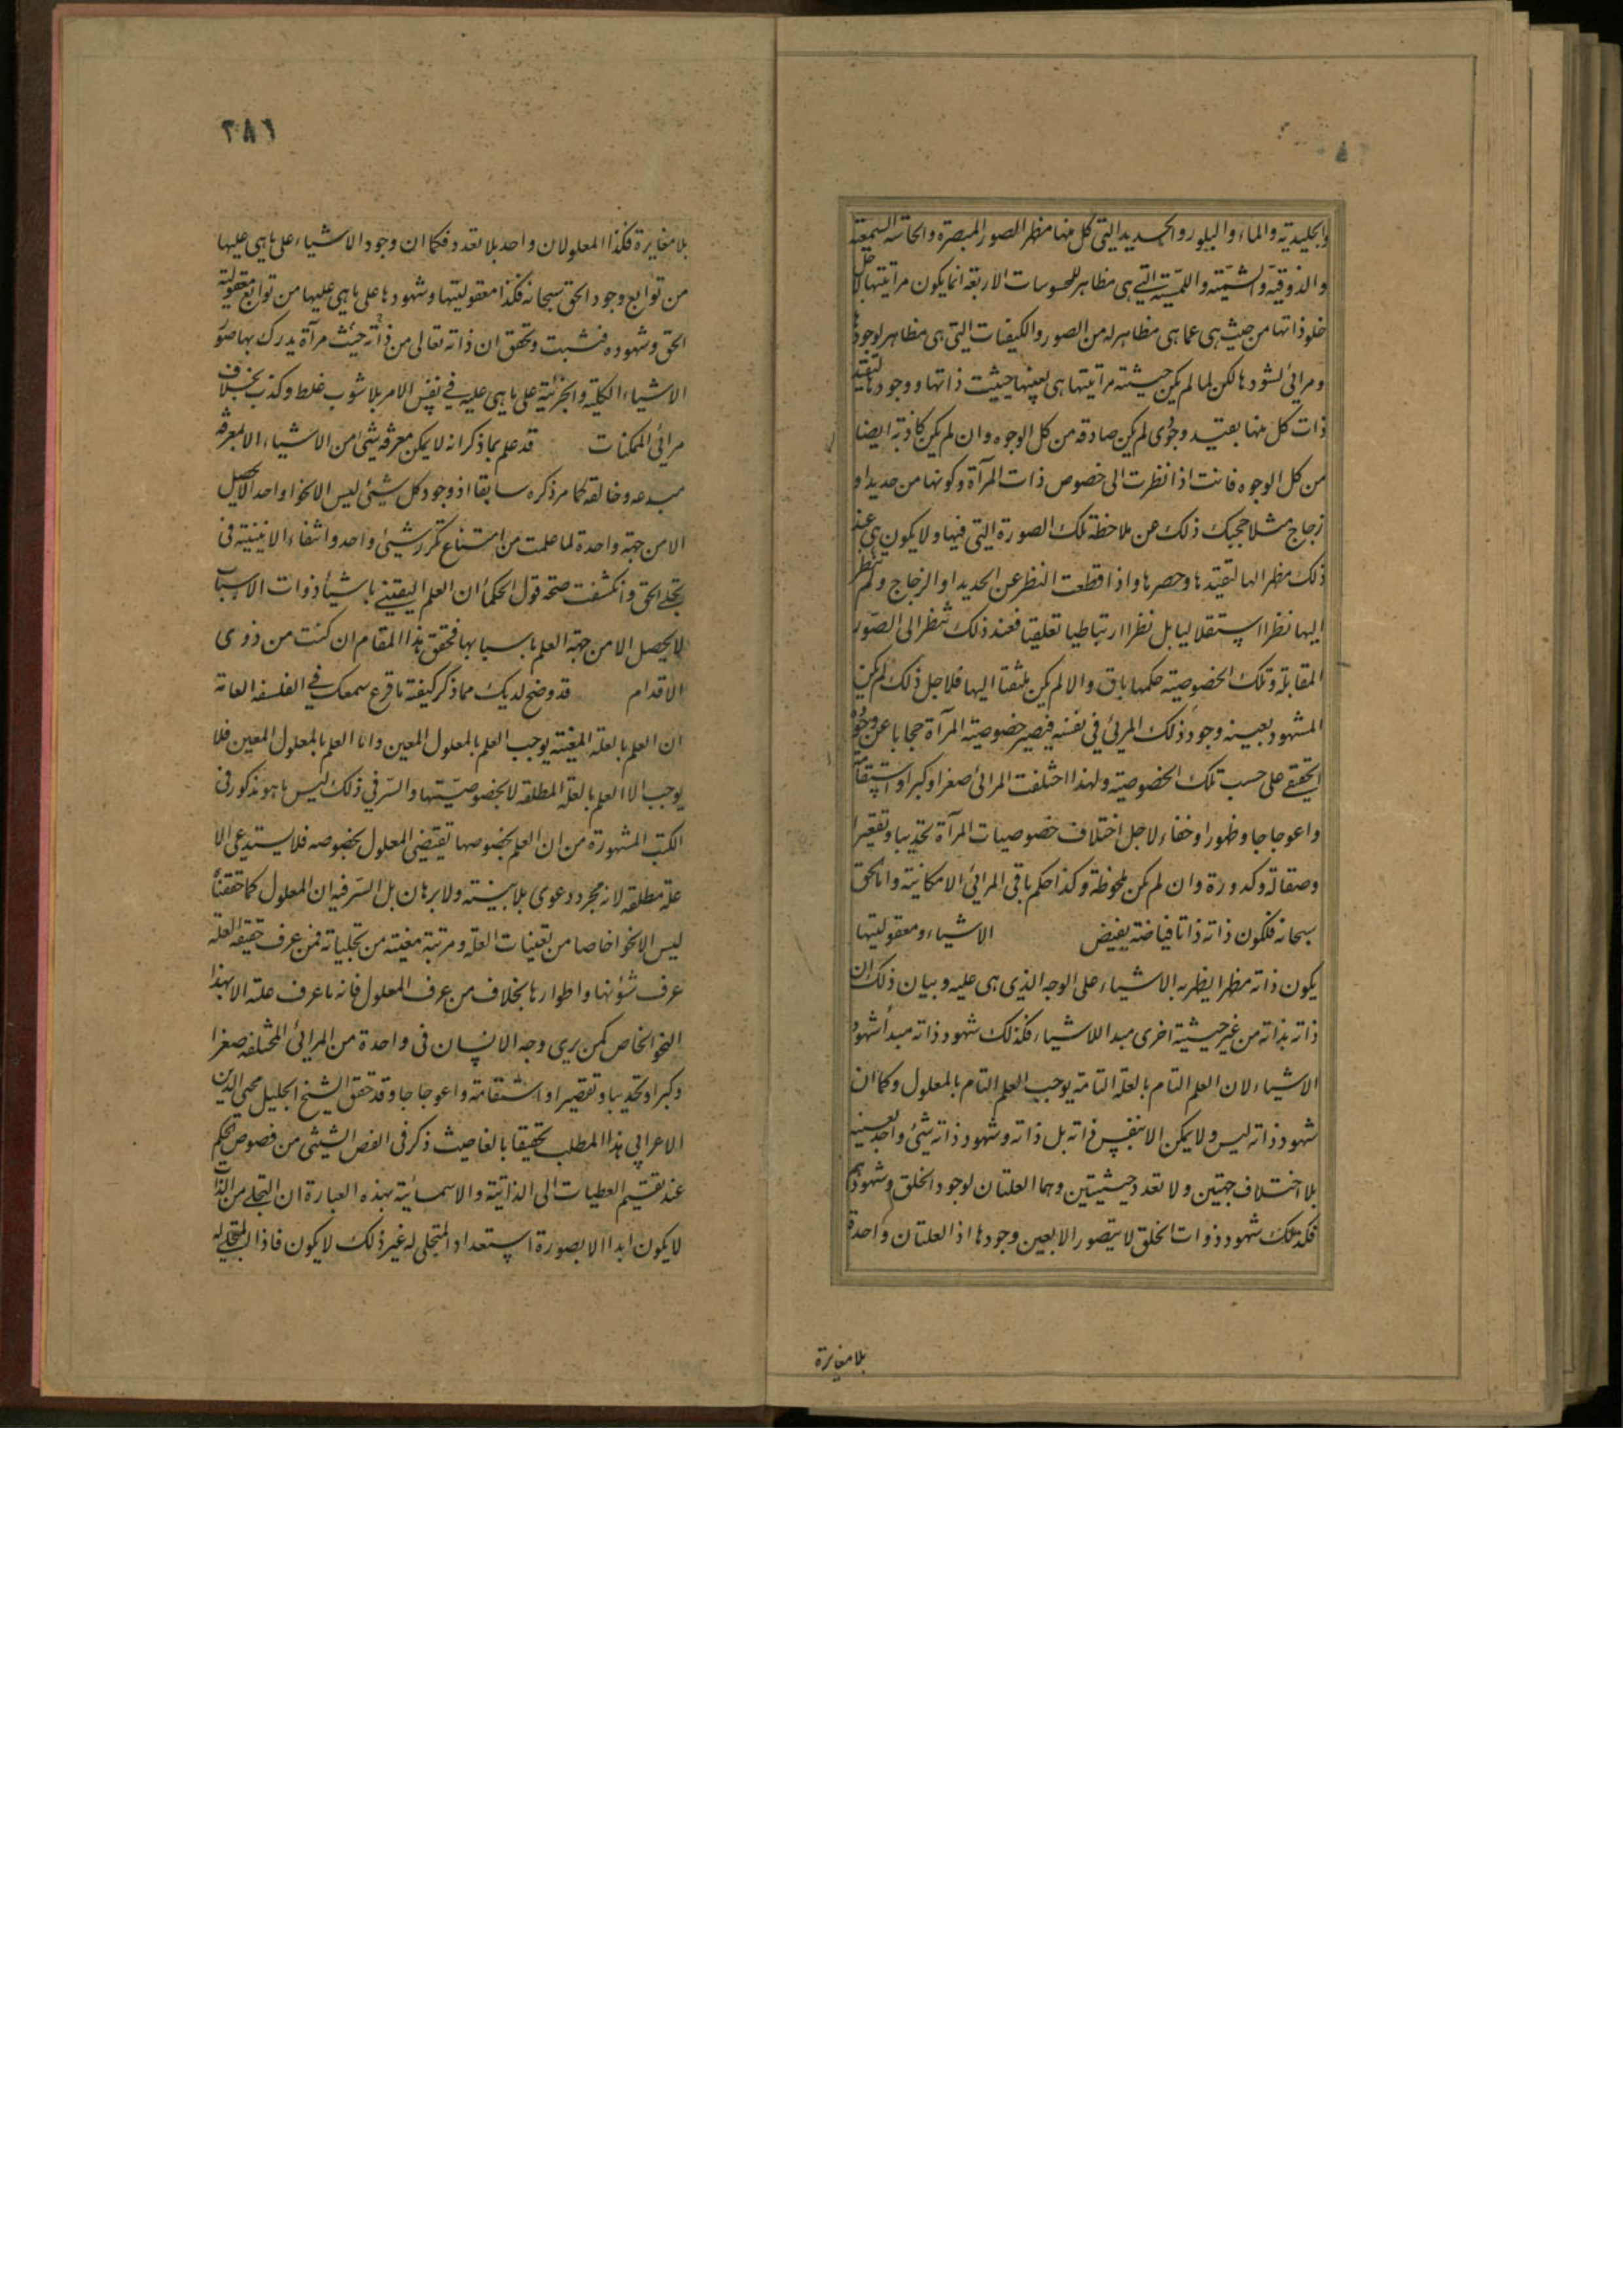 والجليدية والماء والبلور والحديد التي كل منها مظهر الصور المبصرة والحاسة السمعية
والذوقية والشمية واللمسية التي هي مظاهر للمحسوسات الاربعة انما يكون مرآتيتها لاجل
خلو ذاتها من حيث هي عما هي مظاهر له من الصور والكيفيات التي هي مظاهر لوجودها
ومرائي لشهودها لكن لما لم يكن حيثية مرآتيتها هي بعينها حيثيت ذاتها ووجودها لتقيد
ذات كل منها بقيد وجودي لم يكن صادقه من كل الوجوه وان لم يكن كاذبة ايضا
من كل الوجوه فانت اذا نظرت الى خصوص ذات المرآة وكونها من حديد او
زجاج مثلا حجبك ذلك عن ملاحظة تلك الصورة التي فيها ولا يكون هي عند
ذلك مظهرا لها لتقيدها وحصرها واذا قطعت النظر عن الحديد او الزجاج ولم تنظر
اليها نظرا استقلاليا بل نظرا ارتباطيا تعلقيا فعند ذلك تنظر الى الصور
المقابلة وتلك الخصوصية حكمها باق والا لم يكن ملتفتا اليها فلاجل ذلك لم يكن
المشهود بعينه وجود ذلك المرئي في نفسه فيصير خصوصية المرآة حجابا عن وجوده
الحقيقي على حسب تلك الخصوصية ولهذا اختلفت المرائي صغرا وكبرا واستقامة
واعوجاجا وظهورا وخفاء لاجل اختلاف خصوصيات المرآة تحديبا وتقعيرا
وصقالة وكدورة وان لم يكن ملحوظة وكذا حكم باقي المرائي الامكانية واما الحق
سبحانه فلكون ذاته ذاتا فياضة يفيض الاشياء ومعقوليتها
يكون ذاته مظهرا يظهر به الاشياء على الوجه الذي هي عليه وبيان ذلك ان
ذاته بذاته من غير حيثية اخرى مبدا للاشياء فكذلك شهود ذاته مبدأ شهود
الاشياء لان العلم التام بالعلة التامة يوجب العلم التام بالمعلول وكما ان
شهود ذاته ليس ولا يمكن الا بنفس ذاته بل ذاته وشهود ذاته شئ واحد بعينه
بلا اختلاف جهتين ولا تعدد حيثيتين وهما العلتان لوجود الخلق وشهودهم
فكذلك شهود ذوات الخلق لا يتصور الا بعين وجودها اذ العلتان واحدة
بلا مغايرة
٢٨٦
بلا مغايرة فكذا المعلولان واحد بلا تعدد فكما ان وجود الاشياء على ما هي عليها
من توابع وجود الحق سبحانه فكذا معقوليتها وشهودها على ما هي عليها من توابع معقولية
الحق وشهوده فثبت وتحقق ان ذاته تعالى من حيث ذاته مرآة يدرك بها صور
الاشياء الكلية والجزئية على ما هي عليه في نفس الامر بلا شوب غلط وكذب بخلاف
مرائي الممكنات قد علم بما ذكر انه لا يمكن معرفة شئ من الاشياء الا بمعرفة
مبدعه وخالقه كما مر ذكره سابقا اذ وجود كل شئ ليس الا نحوا واحدا لا يحصل
الا من جهة واحدة لما علمت من امتناع تكرر شئ واحد وانتفاء الاثنينية في
تجلي الحق وانكشفت صحة قول الحكما ان العلم اليقيني باشياء ذوات الاسباب
لا يحصل الا من جهة العلم باسبابها فحقق هذا المقام ان كنت من ذوي
الاقدام قد وضح لديك مما ذكر كيفية ما قرع سمعك في الفلسفة العامة
ان العلم بالعلة المعينة يوجب العلم بالمعلول المعين واما العلم بالمعلول المعين فلا
يوجب الا العلم بالعلة المطلقة لا بخصوصيتها والسر في ذلك ليس ما هو مذكور في
الكتب المشهورة من ان العلم بخصوصها تقتضي المعلول بخصوصه فلا يستدعي الا
علة مطلقة لانه مجرد دعوى بلا بينة ولا برهان بل السر فيه ان المعلول كما حققنا
ليس الا نحوا خاصا من تعينات العلة ومرتبة معينة من تجلياته فمن عرف حقيقة العلة
عرف شؤنها واطوارها بخلاف من عرف المعلول فانه ما عرف علته الا بهذا
النحو الخاص كمن يرى وجه الانسان في واحدة من المرائي المختلفة صغرا
وكبرا وتحديبا وتقعيرا واستقامة واعوجاجا وقد حقق الشيخ الجليل محيي الدين
الاعرابي هذا المطلب تحقيقا بالغا حيث ذكر في الفص الشيثي من فصوص الحكم
عند تقسيم العطيات الى الذاتية والاسمائية بهذه العبارة ان التجلي من الذات
لا يكون ابدا الا بصورة استعداد المتجلى له غير ذلك لا يكون فاذا المتجلى له